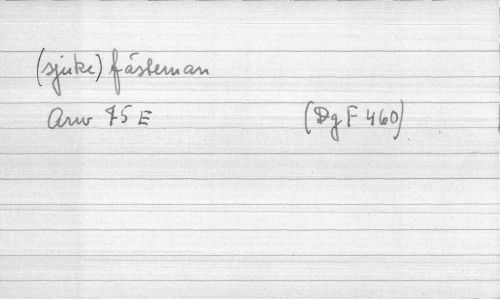 (sjuke) fästeman
Arw 75 E (Dg F 460)